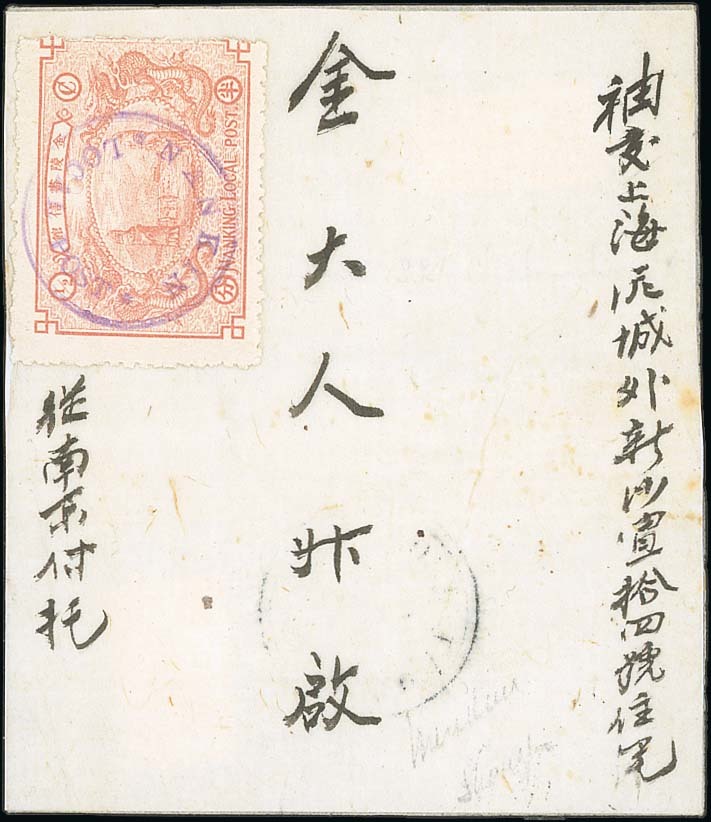 袖交上海泥城外新壹拾四號住宅
金大人升啟
從南京付托
金陵書信館
半
分
NANKING LOCAL POST
NANKING
LOCAL POST